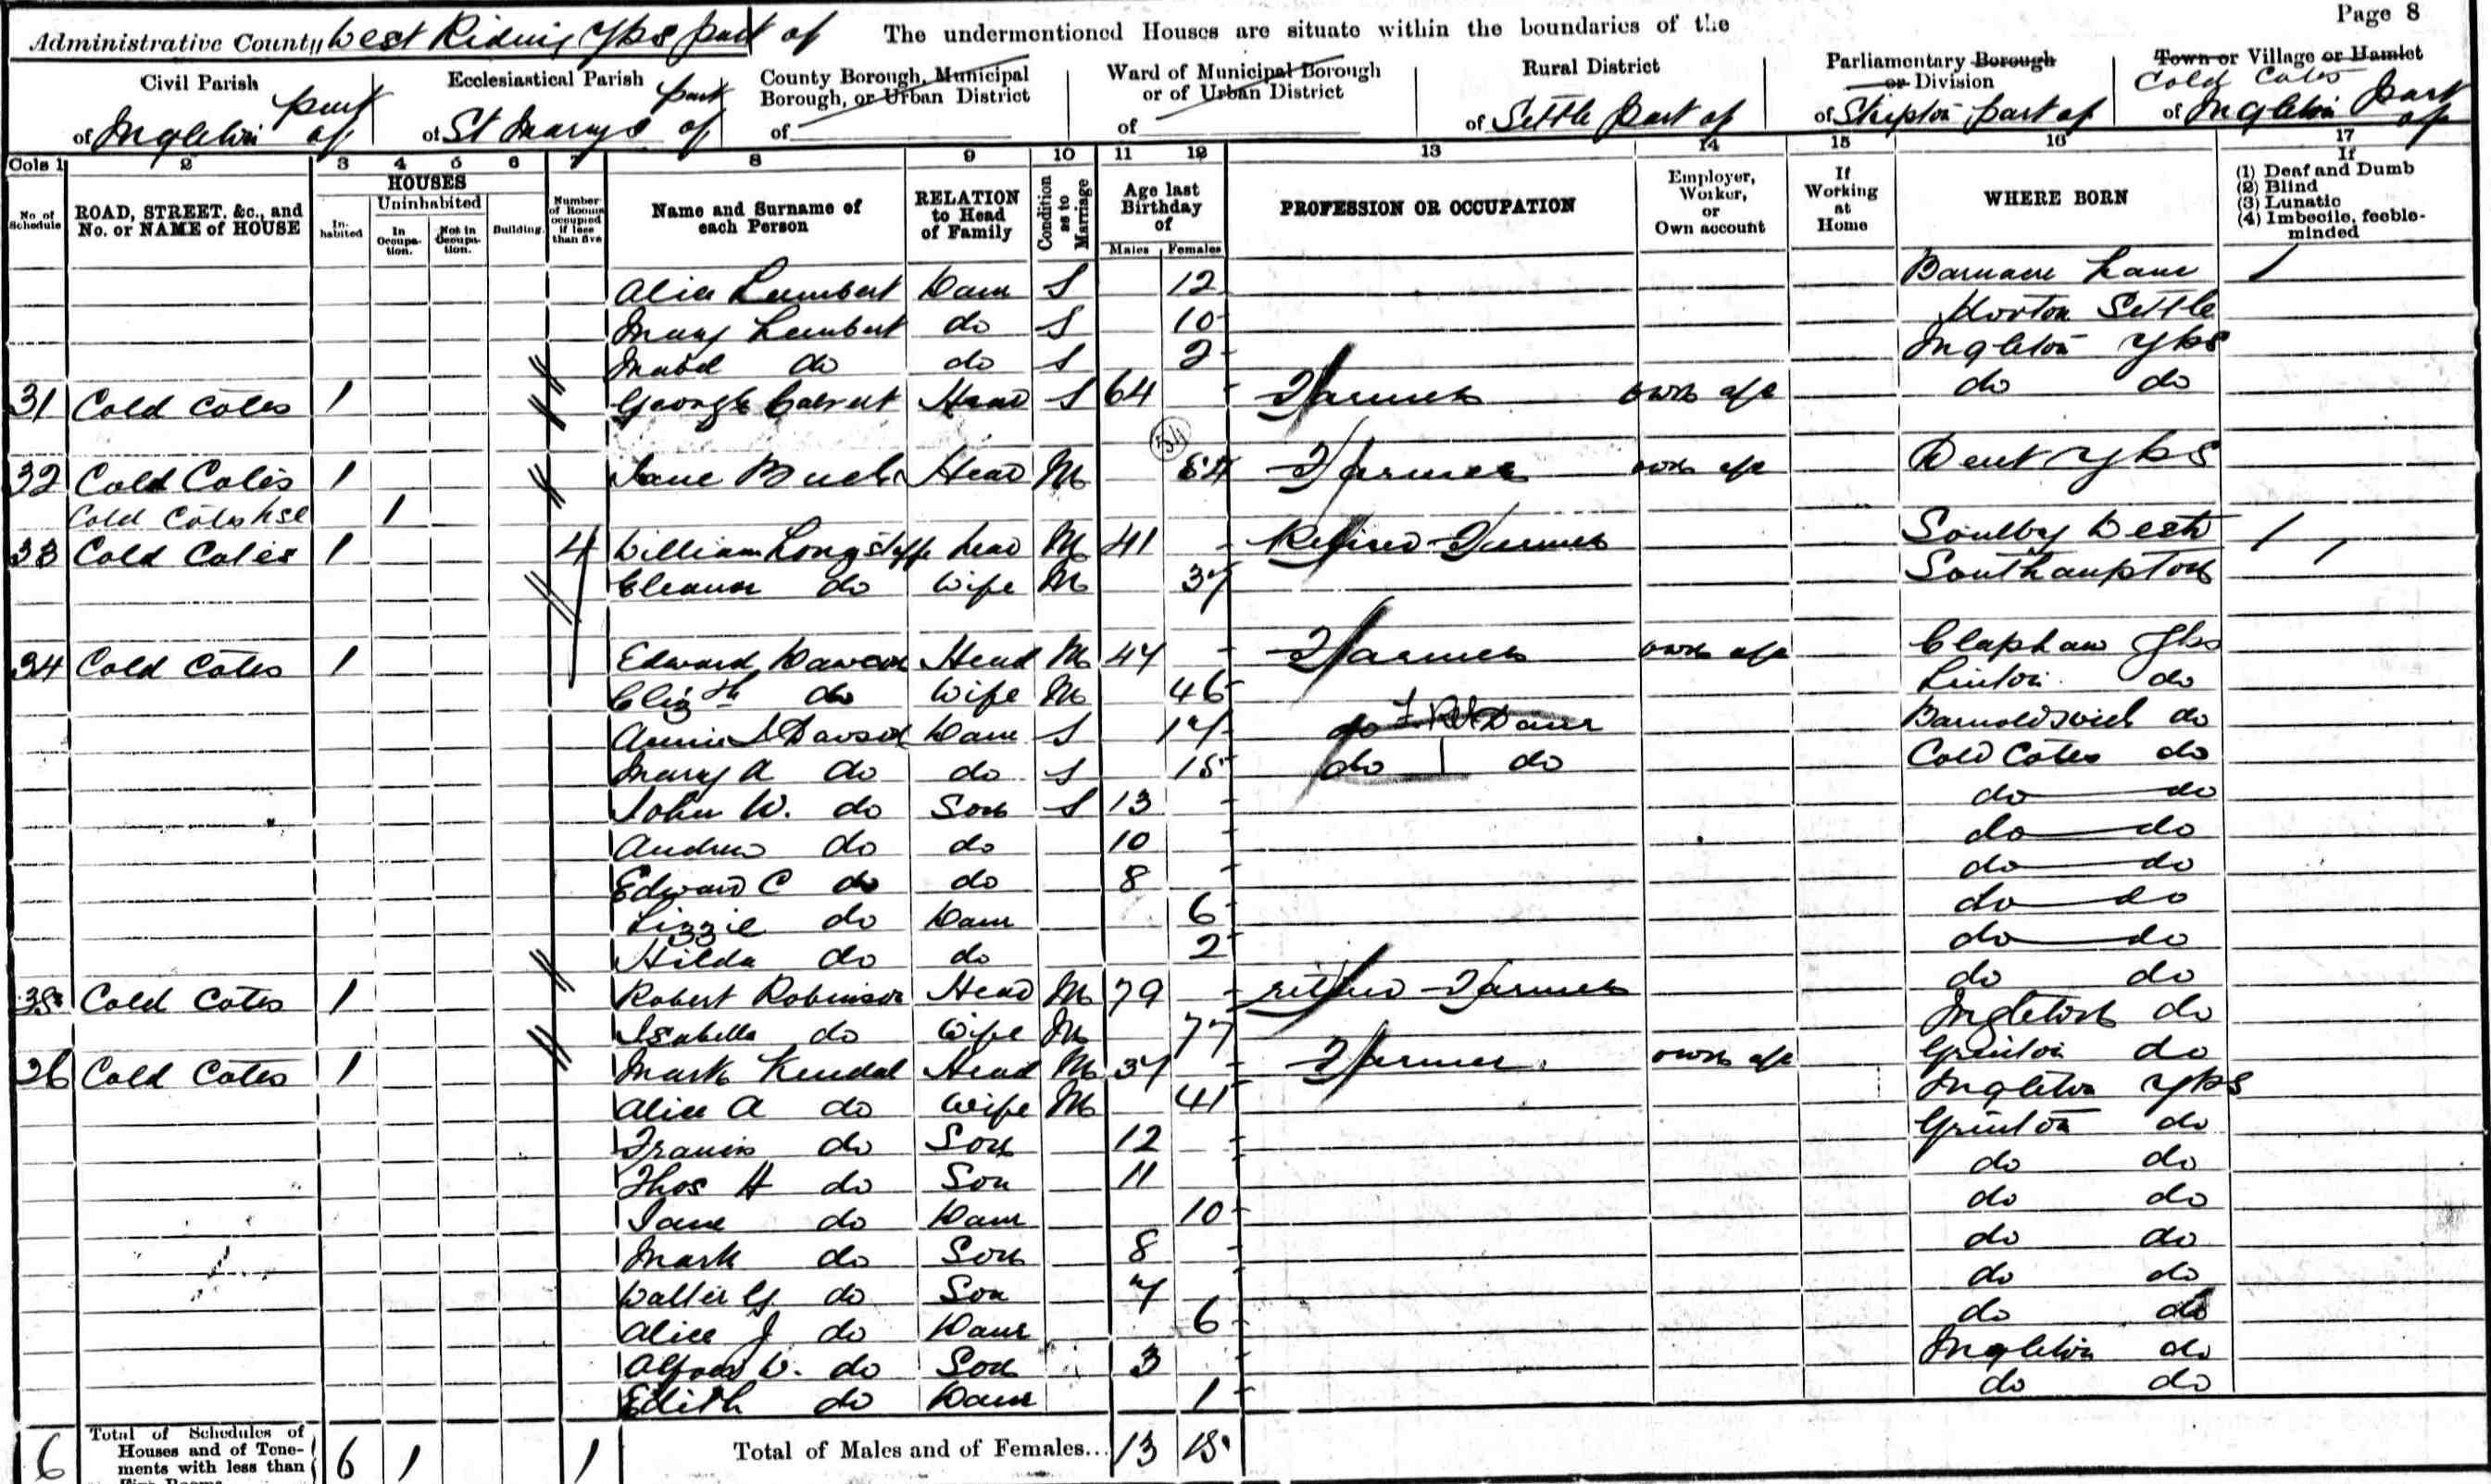 Page 8
Administrative County West Riding Yks part of The undermentioned Houses are situate within the boundaries of the
Civil Parish Ecclesiastical Parish County Borough, Municipal Borough, or Urban District Ward of Municipal Borough or of Urban District Rural District Parliamentary Borough or Division Town or Village or Hamlet
of Ingleton part of of St Marys part of of of of Settle part of of Skipton part of Cold Cotes of Ingleton part of
Cols 1 2 3 4 5 6 7 8 9 10 11 12 13 14 15 16 17
No. of Schedule ROAD, STREET, &c., and No. or NAME of HOUSE HOUSES Inhabited Uninhabited In Occupation. Not in Occupation. Building. Number of Rooms occupied if less than five Name and Surname of each Person RELATION to Head of Family Condition as to Marriage Age last Birthday of Males Females PROFESSION OR OCCUPATION Employer, Worker, or Own account If Working at Home WHERE BORN If (1) Deaf and Dumb (2) Blind (3) Lunatic (4) Imbecile, feeble-minded
Alice Lambert Daur S 12 Lanc
Mary Lambert do S 10 Horton Settle
Mabel do do S 2 Ingleton Yks
31 Cold Cotes 1 George Calvert Head S 64 Farmer own a/c do do
32 Cold Cotes 1 Jane Head M 54 Farmer own a/c Dent Yks
Cold Cotes hse 1
33 Cold Cotes 1 4 William Longstaffe head M 41 Retired Farmer Soulby West
Eleanor do Wife M 37 Southampton
34 Cold Cotes 1 Edward Dawson Head M 47 Farmer own a/c Clapham Yks
Elizth do Wife M 46 Linton do
Annie Dawson Daur S 17 do Daur Barnoldswick do
Mary A do do S 15 do do Cold Cotes do
John W. do Son S 13 do do
Andrew do do 10 do do
Edward C do do 8 do do
Lizzie do Daur 6 do do
Hilda do do 2 do do
35 Cold Cotes 1 Robert Robinson Head M 79 retired Farmer do do
Isabella do Wife M 77 Ingleton do
36 Cold Cotes 1 Mark Kendal Head M 37 Farmer own a/c Grinton do
Alice A do Wife M 41 Ingleton Yks
Francis do Son 12 Grinton do
Thos H do Son 11 do do
Jane do Daur 10 do do
Mark do Son 8 do do
Walter G. do Son 7 do do
Alice J do Daur 6 do do
Alfred W. do Son 3 Ingleton do
Edith do Daur 1 do do
6 Total of Schedules of Houses and of Tenements with less than 6 1 1 Total of Males and of Females... 13 15